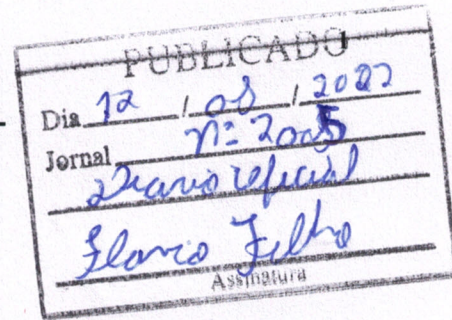 PUBLICADO
Dia 12 / 08 / 2022
Jornal nº 2005
Diario Oficial
Flavio Filho
Assinatura